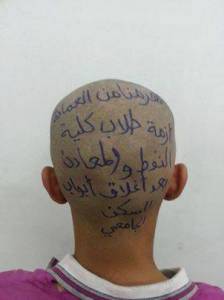 من العمارة
أزمة طلاب كلية
النفط والمعادن
بعد إغلاق أبواب
السكن
الجامعي